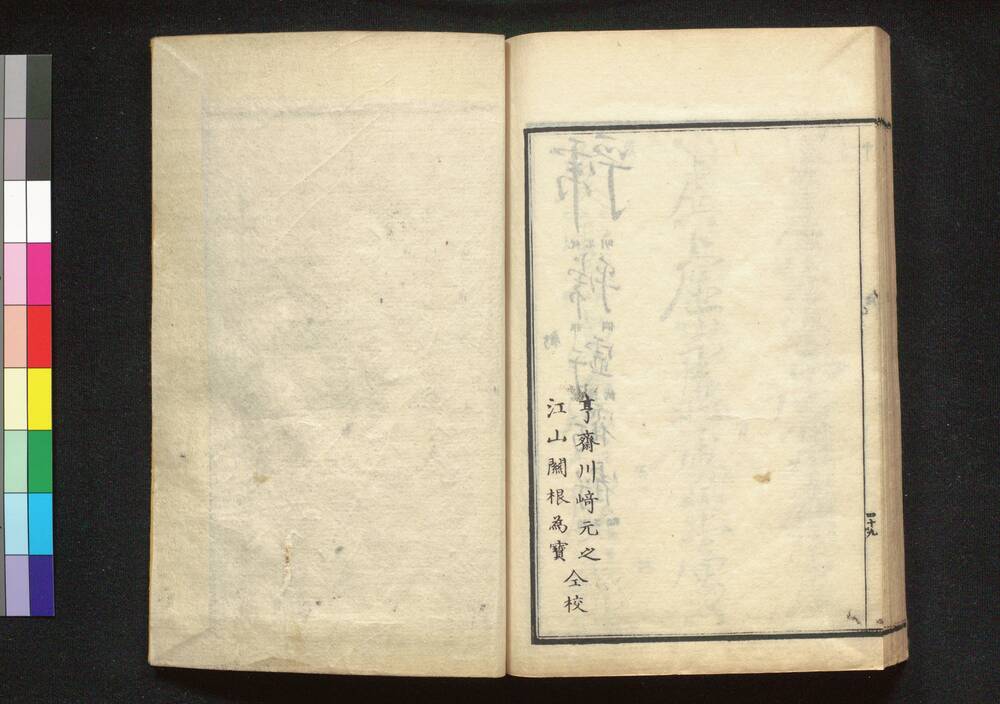 四十九
亨齋川﨑元之
江山關根為寶
仝校